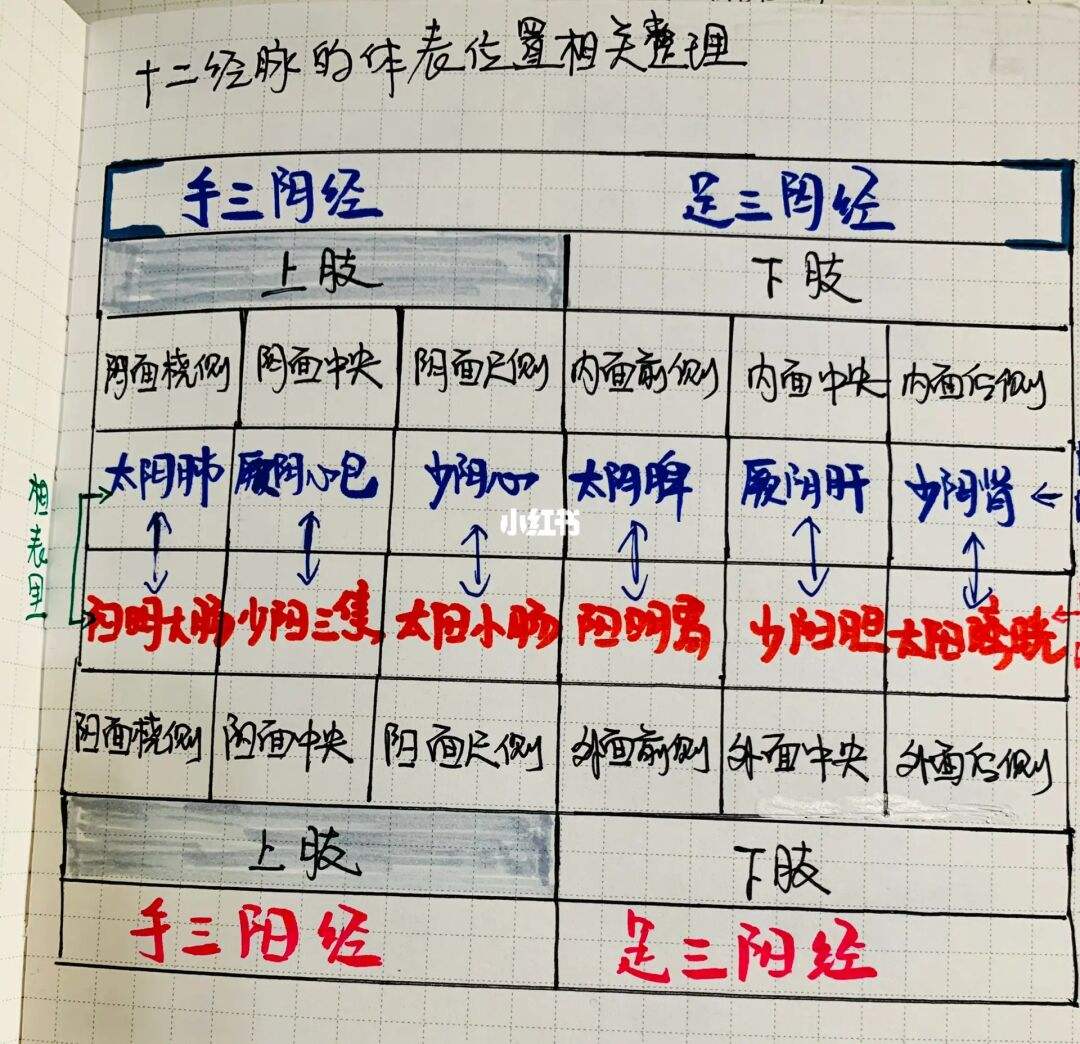 十二经脉的体表位置相关整理
手三阴经 足三阴经
上肢 下肢
阴面桡侧 阴面中央 阴面尺侧 内面前侧 内面中央 内面后侧
太阴肺 厥阴心包 少阴心 太阴脾 厥阴肝 少阴肾
小红书
相表里
阳明大肠 少阳三焦 太阳小肠 阳明胃 少阳胆 太阳膀胱
阳面桡侧 阳面中央 阳面尺侧 外面前侧 外面中央 外面后侧
上肢 下肢
手三阳经 足三阳经